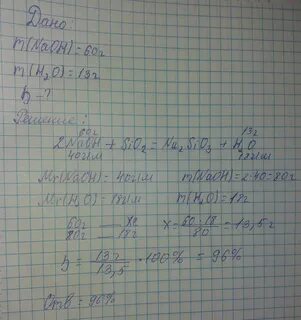 Дано:
m(NaOH)=60г
m(H₂O)=13г
η-?
Решение:
60г 13г
2NaOH + SiO₂ = Na₂SiO₃ + H₂O
40г/м 18г/м
Mr(NaOH) = 40г/м m(NaOH)=2·40=80г
Mr(H₂O) = 18г/м m(H₂O)=18г
60г/80г — xг/18г x = 60·18/80 = 13,5г
η = 13г/13,5 · 100% = 96%
Отв = 96%